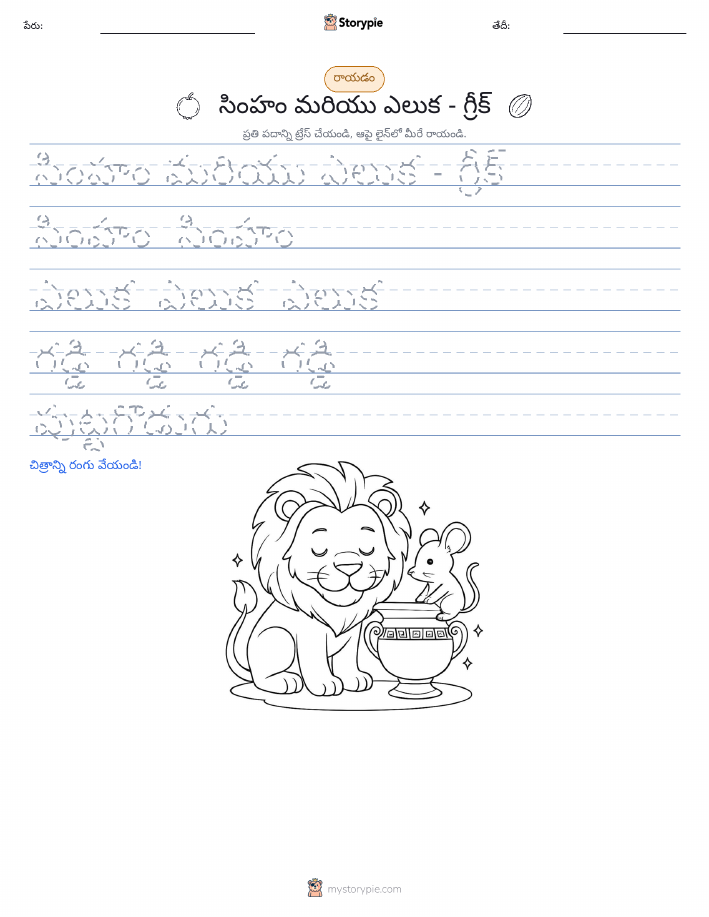 పేరు:
Storypie
తేదీ:
రాయడం
సింహం మరియు ఎలుక - గ్రీక్
ప్రతి పదాన్ని ట్రేస్ చేయండి, ఆపై లైన్‌లో మీరే రాయండి.
సింహం మరియు ఎలుక - గ్రీక్
సింహం సింహం
ఎలుక ఎలుక ఎలుక
గడ్డి గడ్డి గడ్డి గడ్డి
పుట్టగొడుగు
చిత్రాన్ని రంగు వేయండి!
mystorypie.com